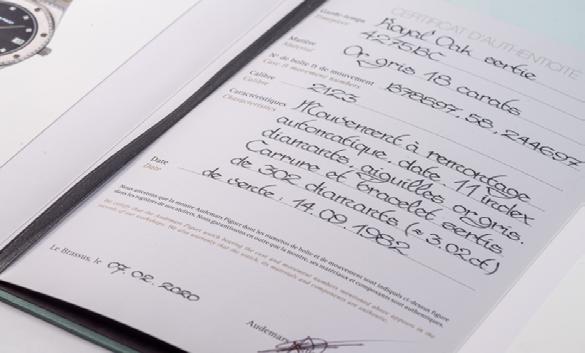 CERTIFICAT D'AUTHENTICITÉ
Garde-temps Royal Oak sertie
Timepiece 4275BC
Matière Or gris 18 carats
Material
N° de boîte & de mouvement B78697, 58, 244697
Case & movement numbers
Calibre 2123
Calibre
Caractéristiques Mouvement à remontage
Characteristics automatique, date. 11 index
diamants, aiguilles or gris.
Carrure et bracelet sertis
de 302 diamants (≈ 3.02ct)
Date de vente : 14.09.1982
Date
Nous attestons que la montre Audemars Piguet dont les numéros de boîte et de mouvement sont indiqués ci-dessus figure
dans les registres de nos ateliers. Nous garantissons en outre que la montre, ses matériaux et composants sont authentiques.
We certify that the Audemars Piguet watch bearing the case and movement numbers mentioned above appears in the
records of our workshops. We also warrant that the watch, its materials and components are authentic.
Le Brassus, le 07.02.2020
Audemars